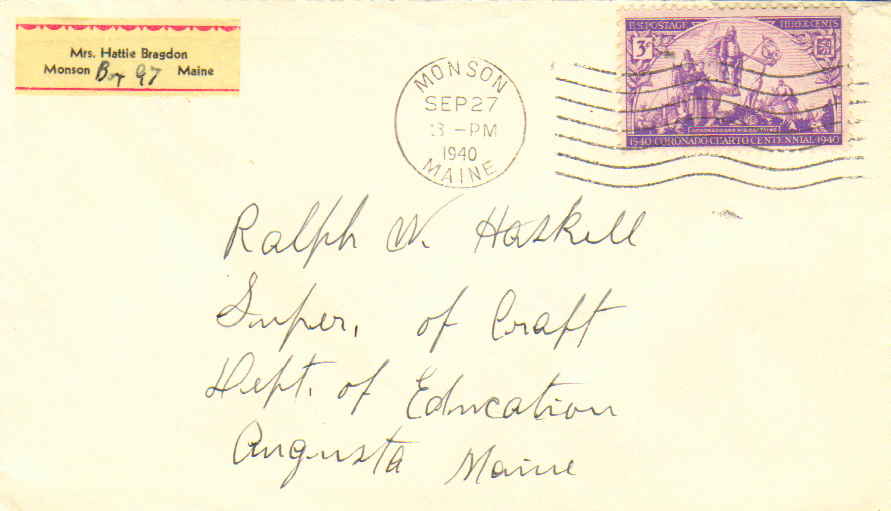 Mrs. Hattie Bragdon
Monson Box 97 Maine
MONSON
SEP 27
3 -PM
1940
MAINE
U.S. POSTAGE THREE CENTS
3¢
1540 CORONADO CUARTO CENTENNIAL 1940
Ralph W. Haskell
Super. of Craft
Dept. of Education
Augusta Maine